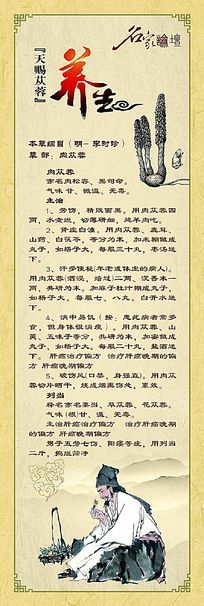 名家論壇
『天赐苁蓉』
养生
本草纲目（明－李时珍）
草 部：肉苁蓉
肉苁蓉
亦名肉松容、黑司命。
气味甘、微温、无毒。
主治
1、劳伤，精败面黑。用肉苁蓉四
两，水煮烂，切薄研细，炖羊肉吃。
2、肾虚白浊。用肉苁蓉、鹿茸、
山药、白茯苓，等分为末，加米糊做成
丸子，如梧子大。每服三十丸，枣汤送
下。
3、汗多便秘(年老或体虚的病人)。
用肉苁蓉(酒浸，焙过)二两，沉香末一
两，共研为末，加麻子仁汁糊成丸子，
如梧子大。每服七、八丸。白开水送
下。
4、消中易饥（按：患此病者常多
食，但身体极消瘦）。用肉苁蓉、山
萸、五味子等分，共研为末，加蜜做成
丸子，如梧子大。每服二十丸，盐酒送
下。肝癌治疗偏方 治疗肝癌晚期的偏
方 肝癌晚期偏方
5、破伤风(口禁、身强直)。用肉苁
蓉切片晒干，烧成烟熏伤处，累效。
列当
释名亦名栗当、草苁蓉、花苁蓉。
气味(根)甘、温、无毒。
主治肝癌治疗偏方 治疗肝癌晚期
的偏方 肝癌晚期偏方
男子五劳七伤，阳痿等症，用列当
二斤，捣烂筛子